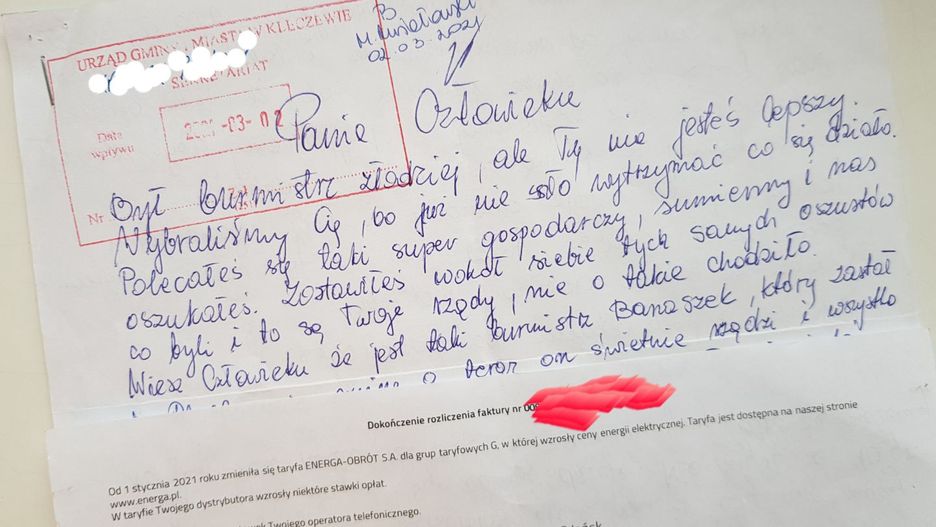 URZĄD GMINY I MIASTA W KLECZEWIE
SEKRETARIAT
Data
wpływu
2021-03-02
Nr
B
02.03.2021
Panie Człowieku
Był burmistrz złodziej, ale Ty nie jesteś lepszy.
Wybraliśmy Cię, bo już nie szło wytrzymać co się działo.
Polecałeś się taki super gospodarczy, sumienny i nas
oszukałeś. Zostawiłeś wokół siebie tych samych oszustów
co byli i to są Twoje rządy, nie o takie chodziło.
Wiesz Człowieku że jest taki burmistrz Banaszek, który zastał
a teraz on świetnie rządzi i wszystko
Dokończenie rozliczenia faktury nr
Od 1 stycznia 2021 roku zmieniła się taryfa ENERGA-OBRÓT S.A. dla grup taryfowych G, w której wzrosły ceny energii elektrycznej. Taryfa jest dostępna na naszej stronie
www.energa.pl.
W taryfie Twojego dystrybutora wzrosły niektóre stawki opłat.
Twojego operatora telefonicznego.